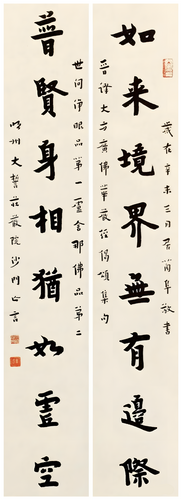 歲在辛未三月居蘭阜敬書
如来境界無有邊際
晉譯大方廣佛華嚴經偈頌集句
世間淨眼品第一盧舍那佛品第二
普賢身相猶如虛空
州大誓莊嚴院沙門亡言